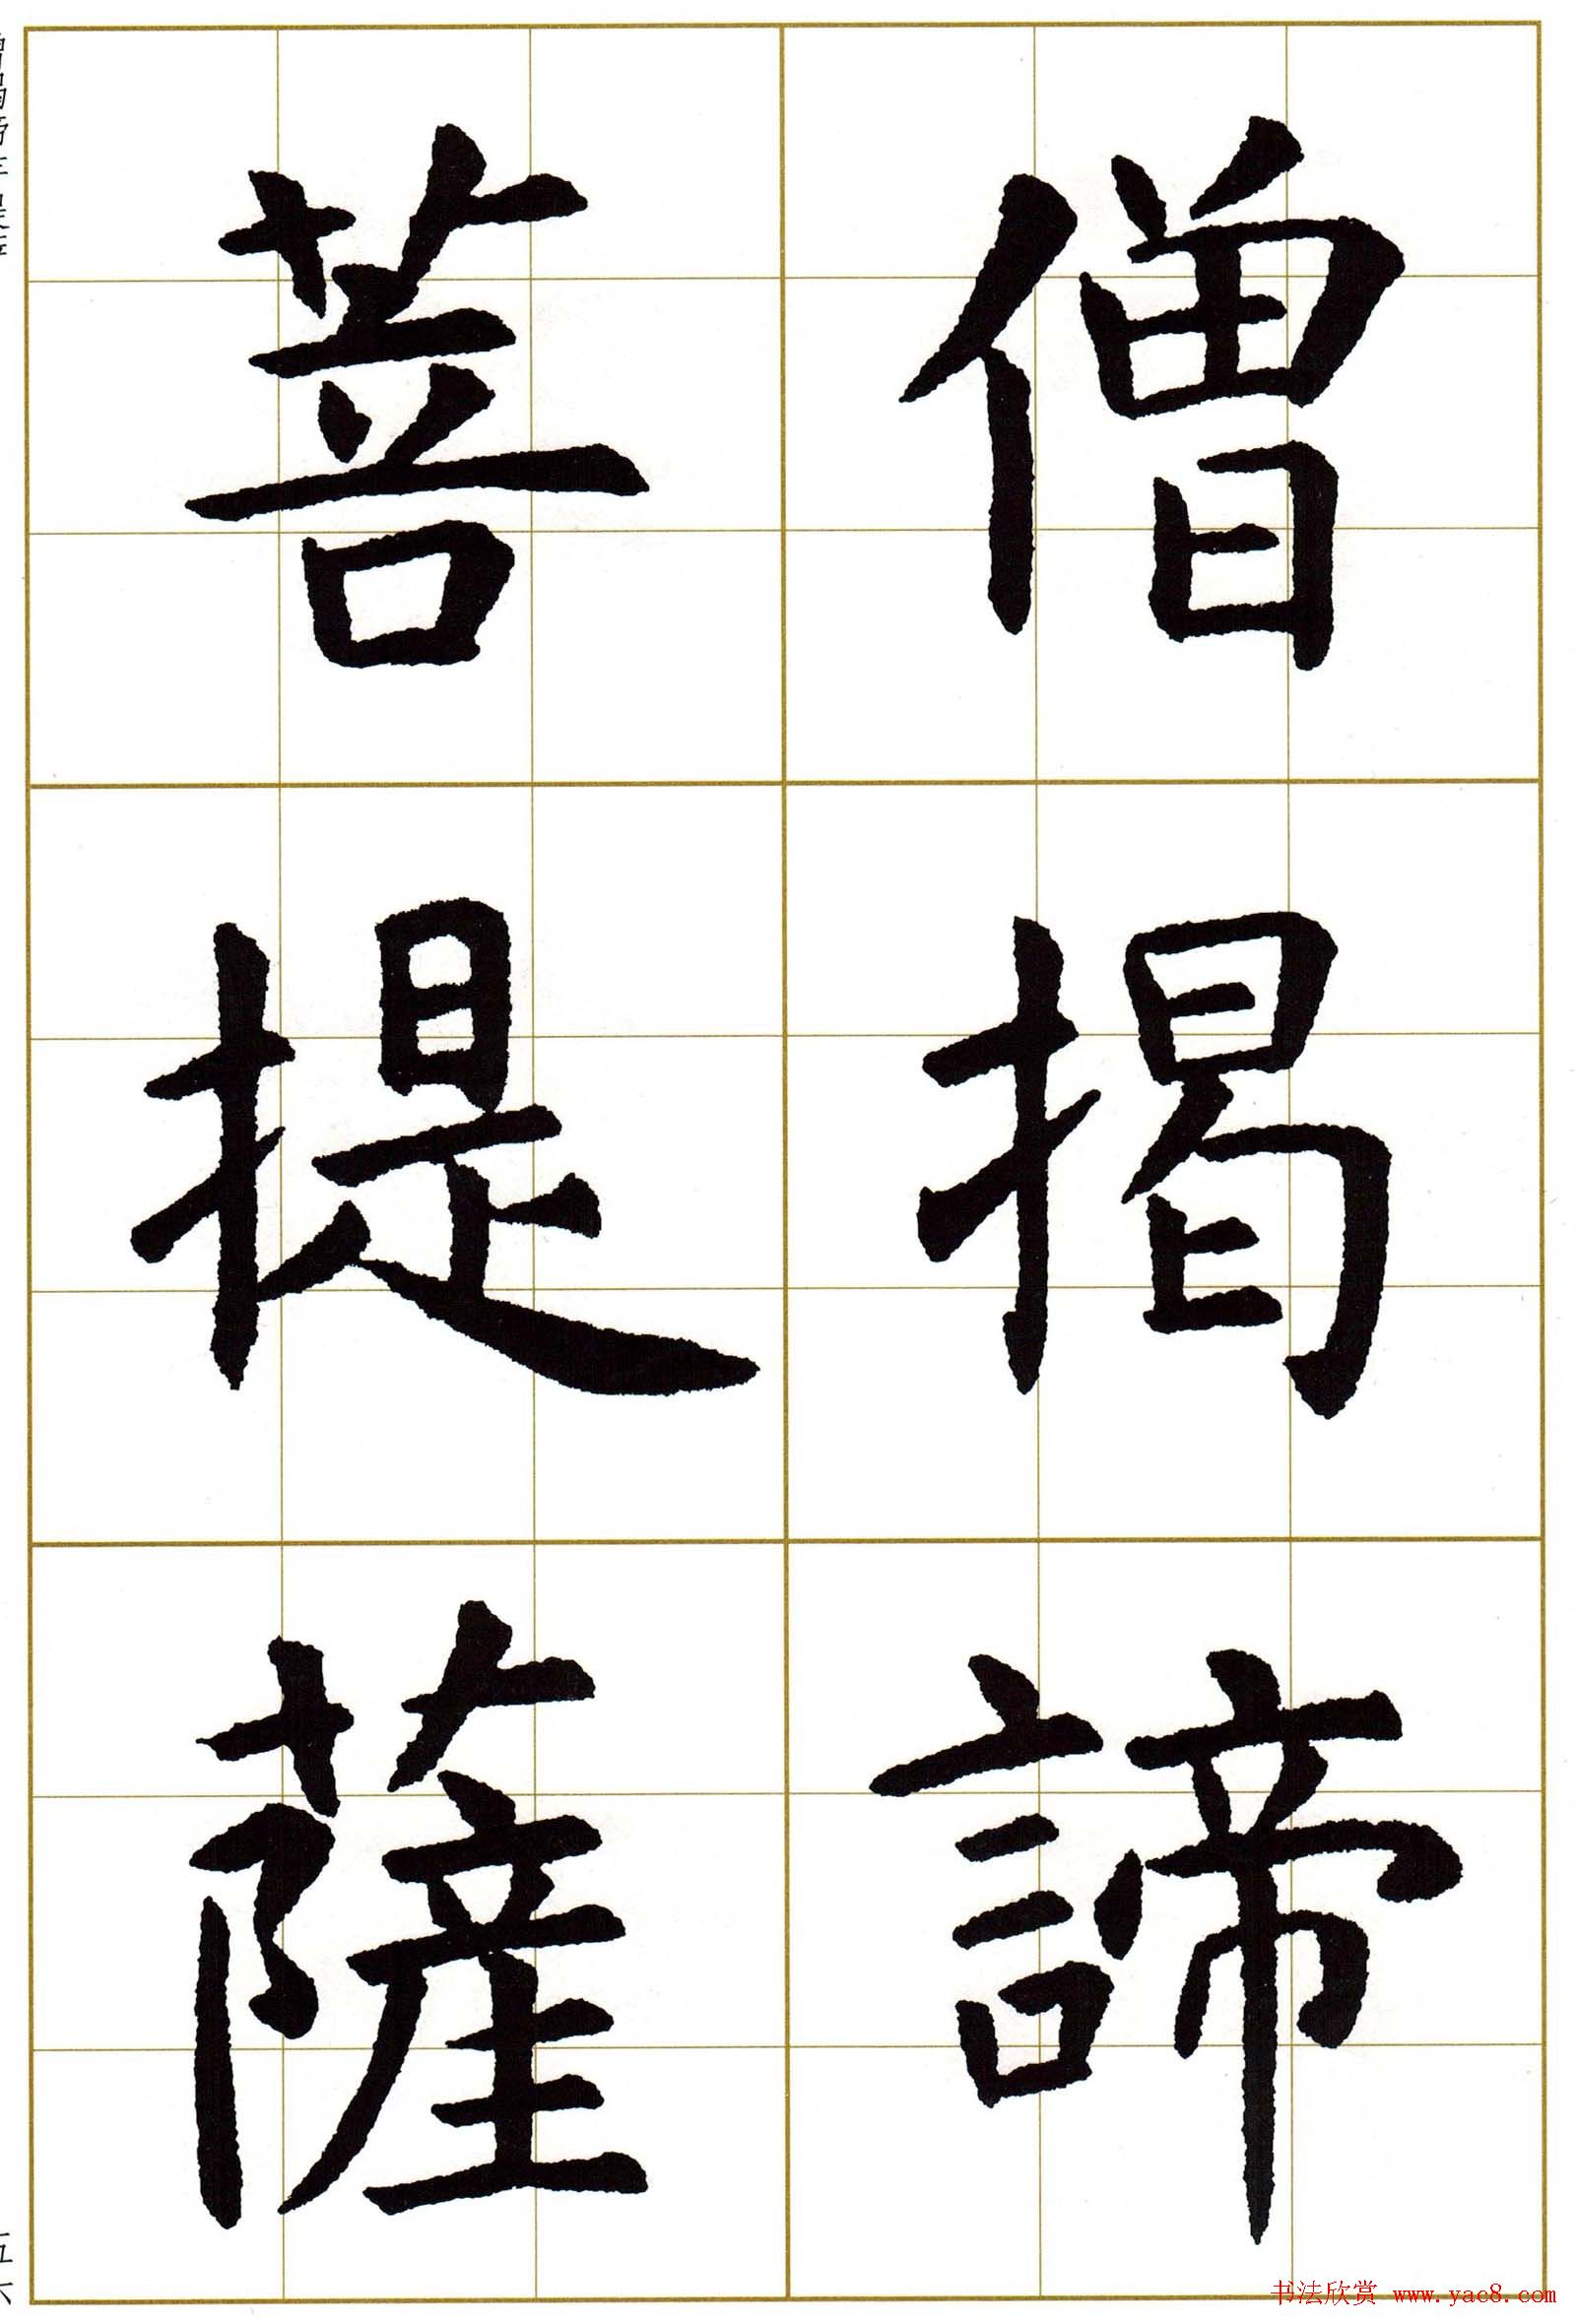 僧揭諦
菩提薩
书法欣赏 www.yac8.com